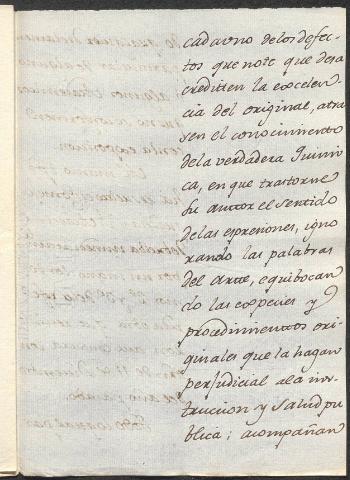 cada uno de los defec-
tos que note que desa
crediten la excelen
cia del original, atra
sen el conocimiento
de la verdadera Quimi
ca, en que trastorne
su autor el sentido
de las expresiones, igno
rando las palabras
del Arte, equibocan
do las especies y
procedimientos ori-
ginales que la hagan
perjudicial a la ins-
truccion y salud pu
blica; acompañan